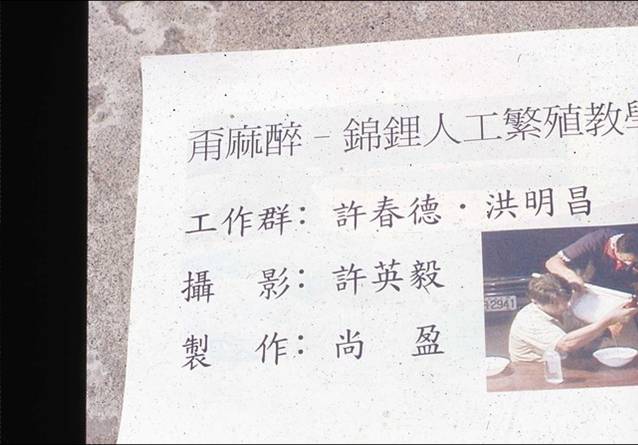 甭麻醉－錦鋰人工繁殖教學
工作群：許春德・洪明昌
攝　影：許英毅
製　作：尚　盈
2941